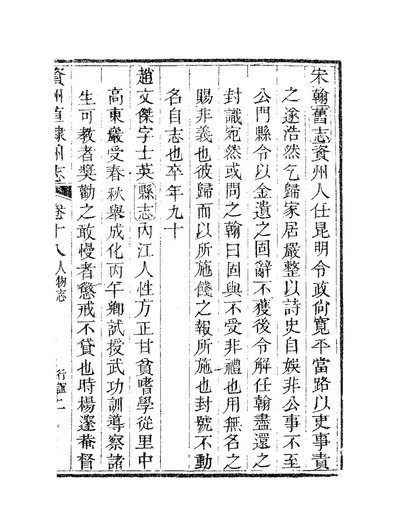 宋翰舊志資州人任昆明令政尙寬平當路以吏事責
之遂浩然乞歸家居嚴整以詩史自娛非公事不至
公門縣令以金遺之固辭不獲後令解任翰盡還之
封識宛然或問之翰曰固與不受非禮也用無名之
賜非義也彼歸而以所施餞之報所施也封號不動
名自志也卒年九十
趙文傑字士英縣志內江人性方正甘貧嗜學從里中
高東嚴受春秋舉成化丙午鄉試授武功訓導察諸
生可教者獎勸之敢慢者懲戒不貸也時楊邃菴督
資州直隸州志
卷十八人物志
行誼